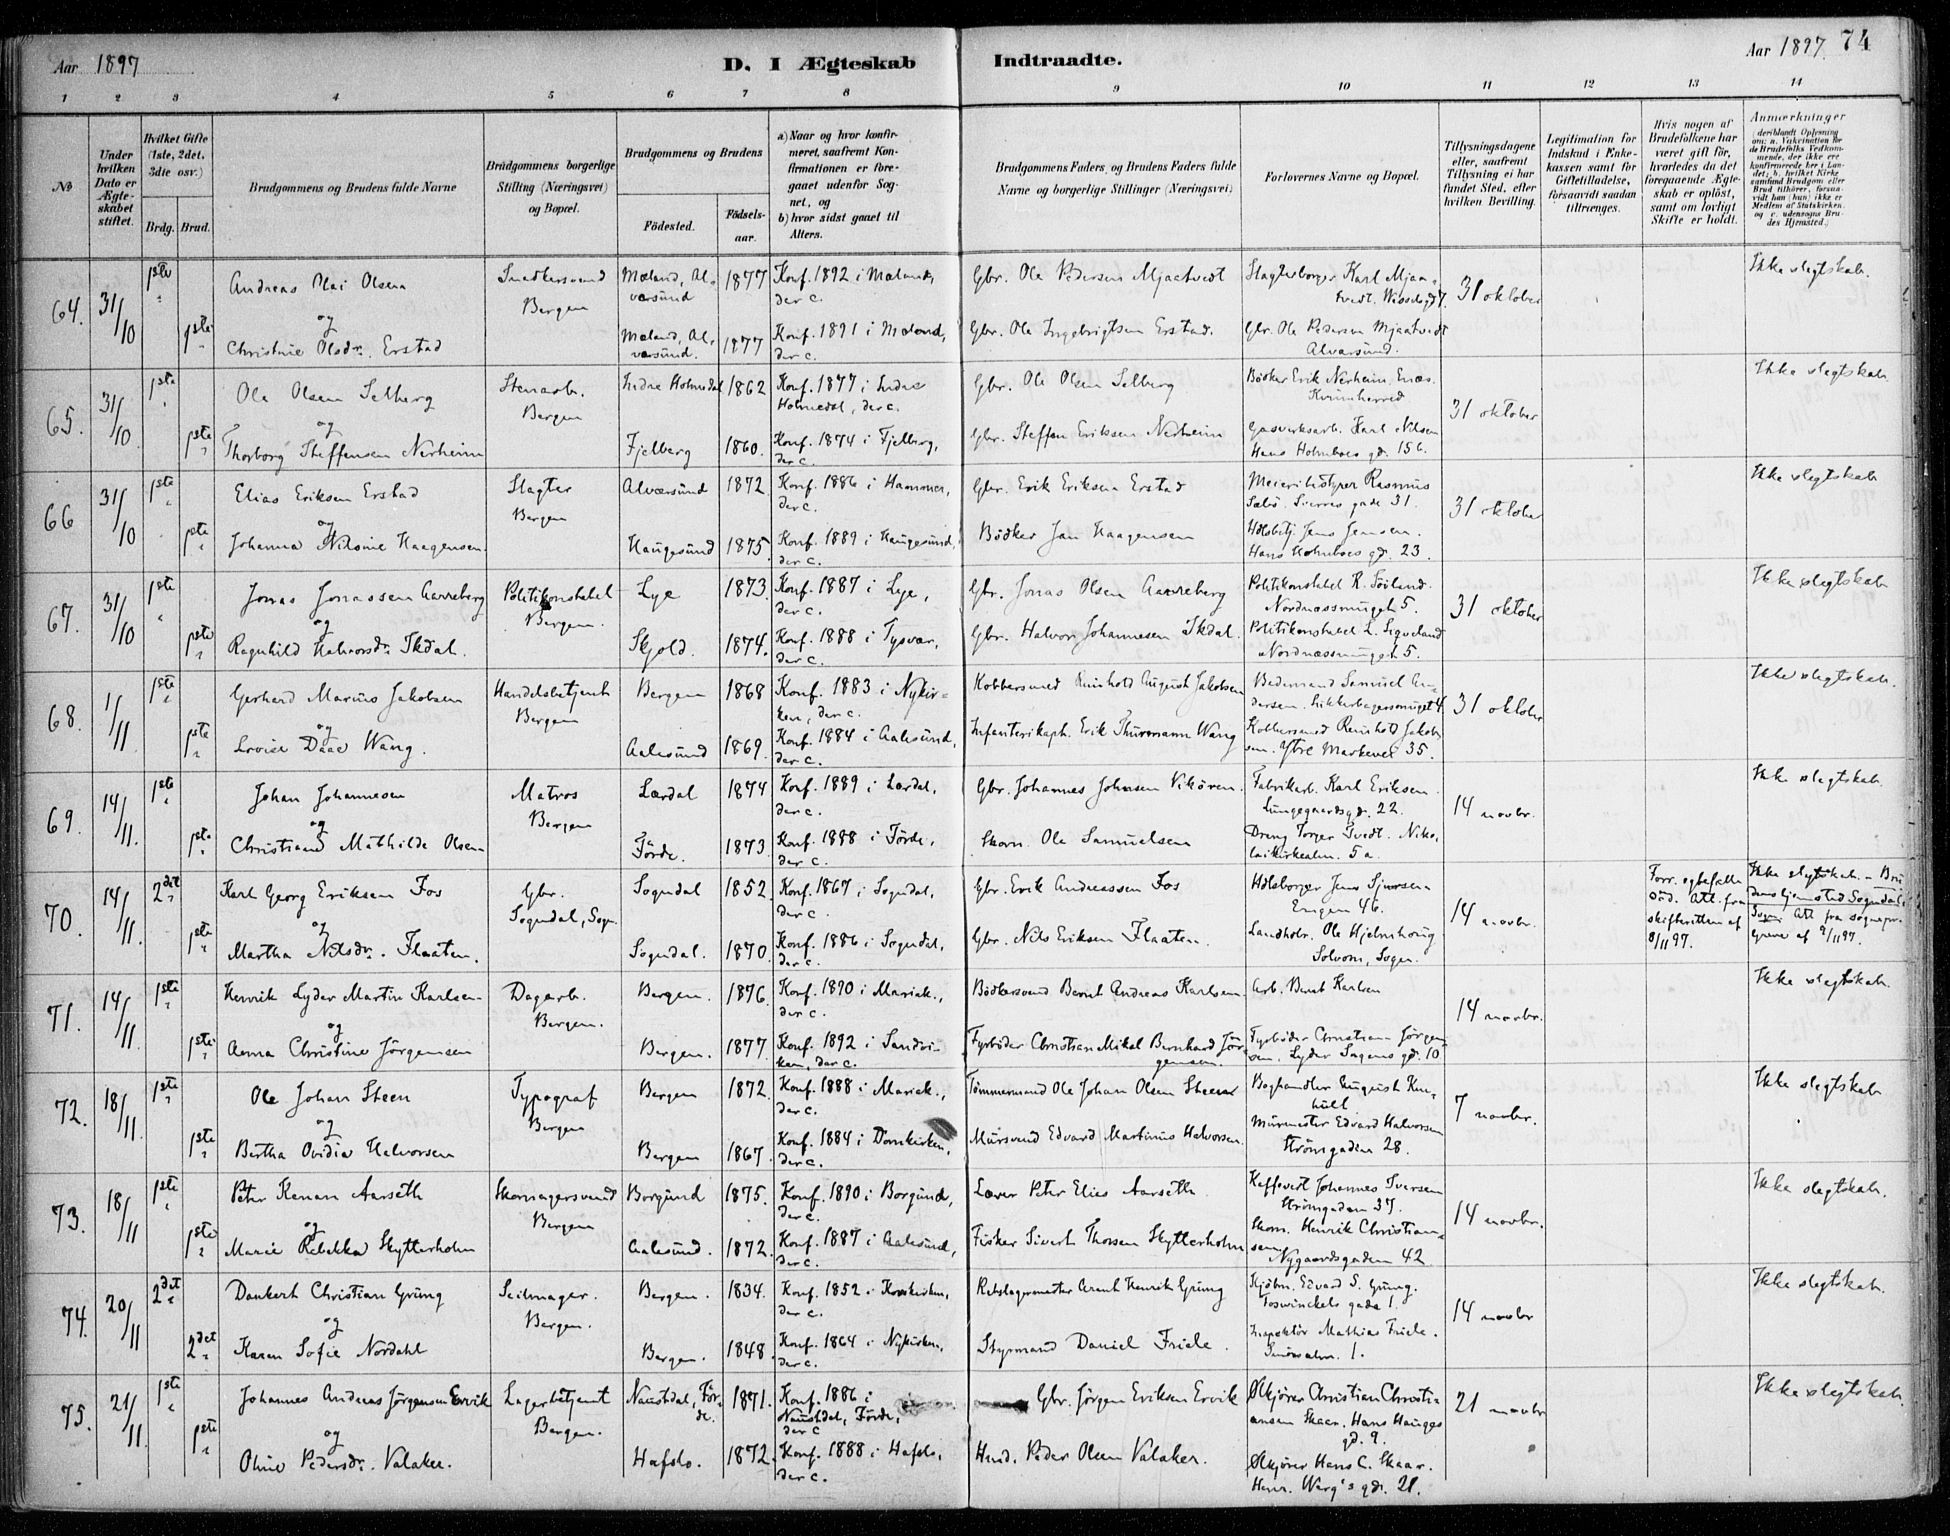 Aar 1897
D. I Ægteskab Indtraadte.
Aar 1897. 74
1 2 3 4 5 6 7 8 9 10 11 12 13 14
No
Under hvilken Dato er Ægteskabet stiftet.
Hvilket Gifte (1ste, 2det, 3die osv.)
Brdg. Brud.
Brudgommens og Brudens fulde Navne
Brudgommens borgerlige Stilling (Næringsvei) og Bopæl.
Brudgommens og Brudens
Fødested.
Fødselsaar.
a) Naar og hvor konfirmeret, saafremt Konfirmationen er foregaaet udenfor Sognet, og
b) hvor sidst gaaet til Alters.
Brudgommens Faders og Brudens Faders fulde Navne og borgerlige Stillinger (Næringsvei)
Forlovernes Navne og Bopæl.
Tillysningsdagene eller, saafremt Tillysning ei har fundet Sted, efter hvilken Bevilling.
Legitimation for Indskud i Enkekassen samt for Giftetilladelse, forsaavidt saadan tiltrænges.
Hvis nogen af Brudefolkene har været gift før, hvorledes da det foregaaende Ægteskab er opløst, samt om lovligt Skifte er holdt.
Anmærkninger (deriblandt Oplysning om: a. Vaccination for de Brudefolks Vedkommende, der ikke ere konfirmerede her i Landet; b. hvilket Kirkesamfund Brudgom eller Brud tilhører, forsaavidt han (hun) ikke er Medlem af Statskirken, og c. udensogns Brudes Hjemsted.)
64. 31/10 1ste Andreas Olai Olsen Bergen Mæland, Alversund 1877 Konf. 1892 i Mæland, der c. Gbr. Ole Pedersen Mjaatvedt Slagterborger Karl Mjaatvedt. 31 oktober Ikke slegtskab.
og
1ste Christine Olsdr. Erstad Mæland, Alversund. 1877 Konf. 1891 i Mæland, der c. Gbr. Ole Ingebrigtsen Erstad. Gbr. Ole Pedersen Mjaatvedt Alversund.
65. 31/10. 1ste Ole Olsen Selberg Stenarb. Bergen Indre Holmedal 1862 Konf. 1877 i Indre Holmedal, der c. Gbr. Ole Olsen Selberg Bødker Erik Nerheim, Enæs. Kvinnherred 31 oktober Ikke slegtskab.
og
1ste Thorborg Steffensen Nerheim Fjelberg 1860. Konf. 1874 i Fjelberg, der c. Gbr. Steffen Eriksen Nerheim Gasverksarb. Karl Nilsen Hans Holmboes gd. 156.
66 31/10 1ste Elias Eriksen Erstad Slagter Bergen Alversund 1872. Konf. 1886 i Hammer, der c. Gbr. Erik Eriksen Erstad Meieribestyrer Rasmus Sverres gade 31. 31 oktober Ikke slegtskab
og
1ste Johanna Nilsine Haagensen. Haugesund 1875 Konf. 1889 i Haugesund, der c. Bødker Jan Haagensen Hdlsbetj. Jens Jensen. Hans Holmboes gd. 23.
67. 31/10 1ste Jonas Jonassen Aarreberg Politikonstabel Bergen. Lye 1873. Konf. 1887 i Lye, der c. Gbr. Jonas Olsen Aarreberg Politikonstabel R. Söiland. Nordnæssmuget 5. 31 oktober Ikke slegtskab
og
1ste Ragnhild Halvorsdr. Ikdal. Skjold. 1874. Konf. 1888 i Tysvær, der c. Gbr. Halvor Johannesen Ikdal. Politikonstabel L. Sigveland Nordnæssmuget 5.
68. 1/11 1ste Gerhard Marius Jakobsen Handelsbetjent Bergen Bergen 1868 Konf. 1883 i Nykirken, der c. Kobbersmed Reinhold August Jakobsen Samuel Andersen. 31 oktober Ikke slegtskab.
og
1ste Lovise Daae Wang. Aalesund 1869. Konf. 1884 i Aalesund, der c. Infanterikapt. Erik Thurmann Wang Kobbersmed Reinhold Jakobsen. Ytre Markevei 35.
69. 14/11. 1ste Johan Johannesen Matros Bergen Lærdal 1874 Konf. 1889 i Lærdal, der c. Gbr. Johannes Johnsen Vikören. Fabrikarb. Karl Eriksen. Lungegaardsgd. 22. 14 novbr. Ikke slegtskab.
og
1ste Christiane Mathilde Olsen Förde. 1873. Konf. 1888 i Förde, der c. Skom. Ole Samuelsen Dreng Torger Tvedt. Nikolaikirkealm. 5a.
70. 14/11. 2det Karl Georg Eriksen Fos Gbr. Sogndal, Sogn. Sogndal 1852. Konf. 1867 i Sogndal, der c. Gbr. Erik Andreassen Fos Hdlsborger Jens Sjursen Engen 46. 14 novbr. Forr. egtefælle död. Att. fra skifteretten af 8/11 97. Ikke slegtskab. – Brudens hjemsted Sogndal i Sogn. Att. fra sognepr. af 9/11 97.
og
1ste Martha Nilsdr. Flaaten. Sogndal. 1870. Konf. 1886 i Sogndal, der c. Gbr. Nils Eriksen Flaaten. Landhdlr. Ole Hjelmhaug Solvorn, Sogn.
71. 14/11 1ste Henrik Lyder Martin Karlsen Dagarb. Bergen. Bergen. 1876. Konf. 1890 i Mariak., der c. Bødkersvend Bernt Andreas Karlsen. Arb. Bernt Karlsen 14 novbr. Ikke slegtskab.
og
1ste Anna Christine Jörgensen Bergen. 1877. Konf. 1892 i Sandviken, der c. Fyrböder Christian Mikal Bernhard Jörgensen. Fyrböder Christian Jörgensen. Lyder Sagens gd. 10
72. 18/11. 1ste Ole Johan Steen Typograf Bergen Bergen 1872. Konf. 1888 i Mariak., der c. Tömmermand Ole Johan Olsen Steen Boghandler August 7 novbr. Ikke slegtskab
og
1ste Bertha Ovidia Halvorsen Bergen 1867. Konf. 1884 i Domkirken, der c. Mursvend Edvard Martinus Halvorsen. Murmester Edvard Halvorsen Strömgaden 28.
73. 18/11 1ste Peter Kenan Aarseth Skomagersvend Bergen Borgund 1875. Konf. 1890 i Borgund, der c. Lærer Peter Elias Aarseth. Kaffevert Johannes Iversen Strömgaden 37. 14 novbr. Ikke slegtskab.
og
1ste Marie Rebekka Skytterholm Aalesund. 1872. Konf. 1887 i Aalesund, der c. Fisker Sivert Thorsen Skytterholm Skom. Henrik Christiansen Nygaardsgaden 42
74. 20/11 2det Dankert Christian Grung Seilmager. Bergen. Bergen. 1834. Konf. 1852 i Korskirken, der c. Rebslagermester Arent Henrik Grung Kjöbm. Edvard S. Grung. Foswinckels gade 1. 14 novbr Ikke slegtskab.
og
2det Karen Sofie Nordahl Bergen. 1848. Konf. 1864 i Nykirken, der c. Styrmand Daniel Friele. Inspektör Mathias Friele. 1.
75. 21/11. 1ste Johannes Andreas Jørgensen Ervik Lagerbetjent Bergen. Naustdal, Förde. 1871. Konf. 1886 i Naustdal, Förde, der c Gbr. Jørgen Eriksen Ervik Ölkjører Christian Christiansen Skaar. Hans Hauges gd. 9. 21 novbr Ikke slegtskab
og
1ste Oline Pedersdr. Valaker. Hafslo. 1872. Konf. 1888 i Hafslo, der c. Hmd. Peder Olsen Valaker. Ölkjører Hans C. Skaar. Henr. Werg's gd. 21.